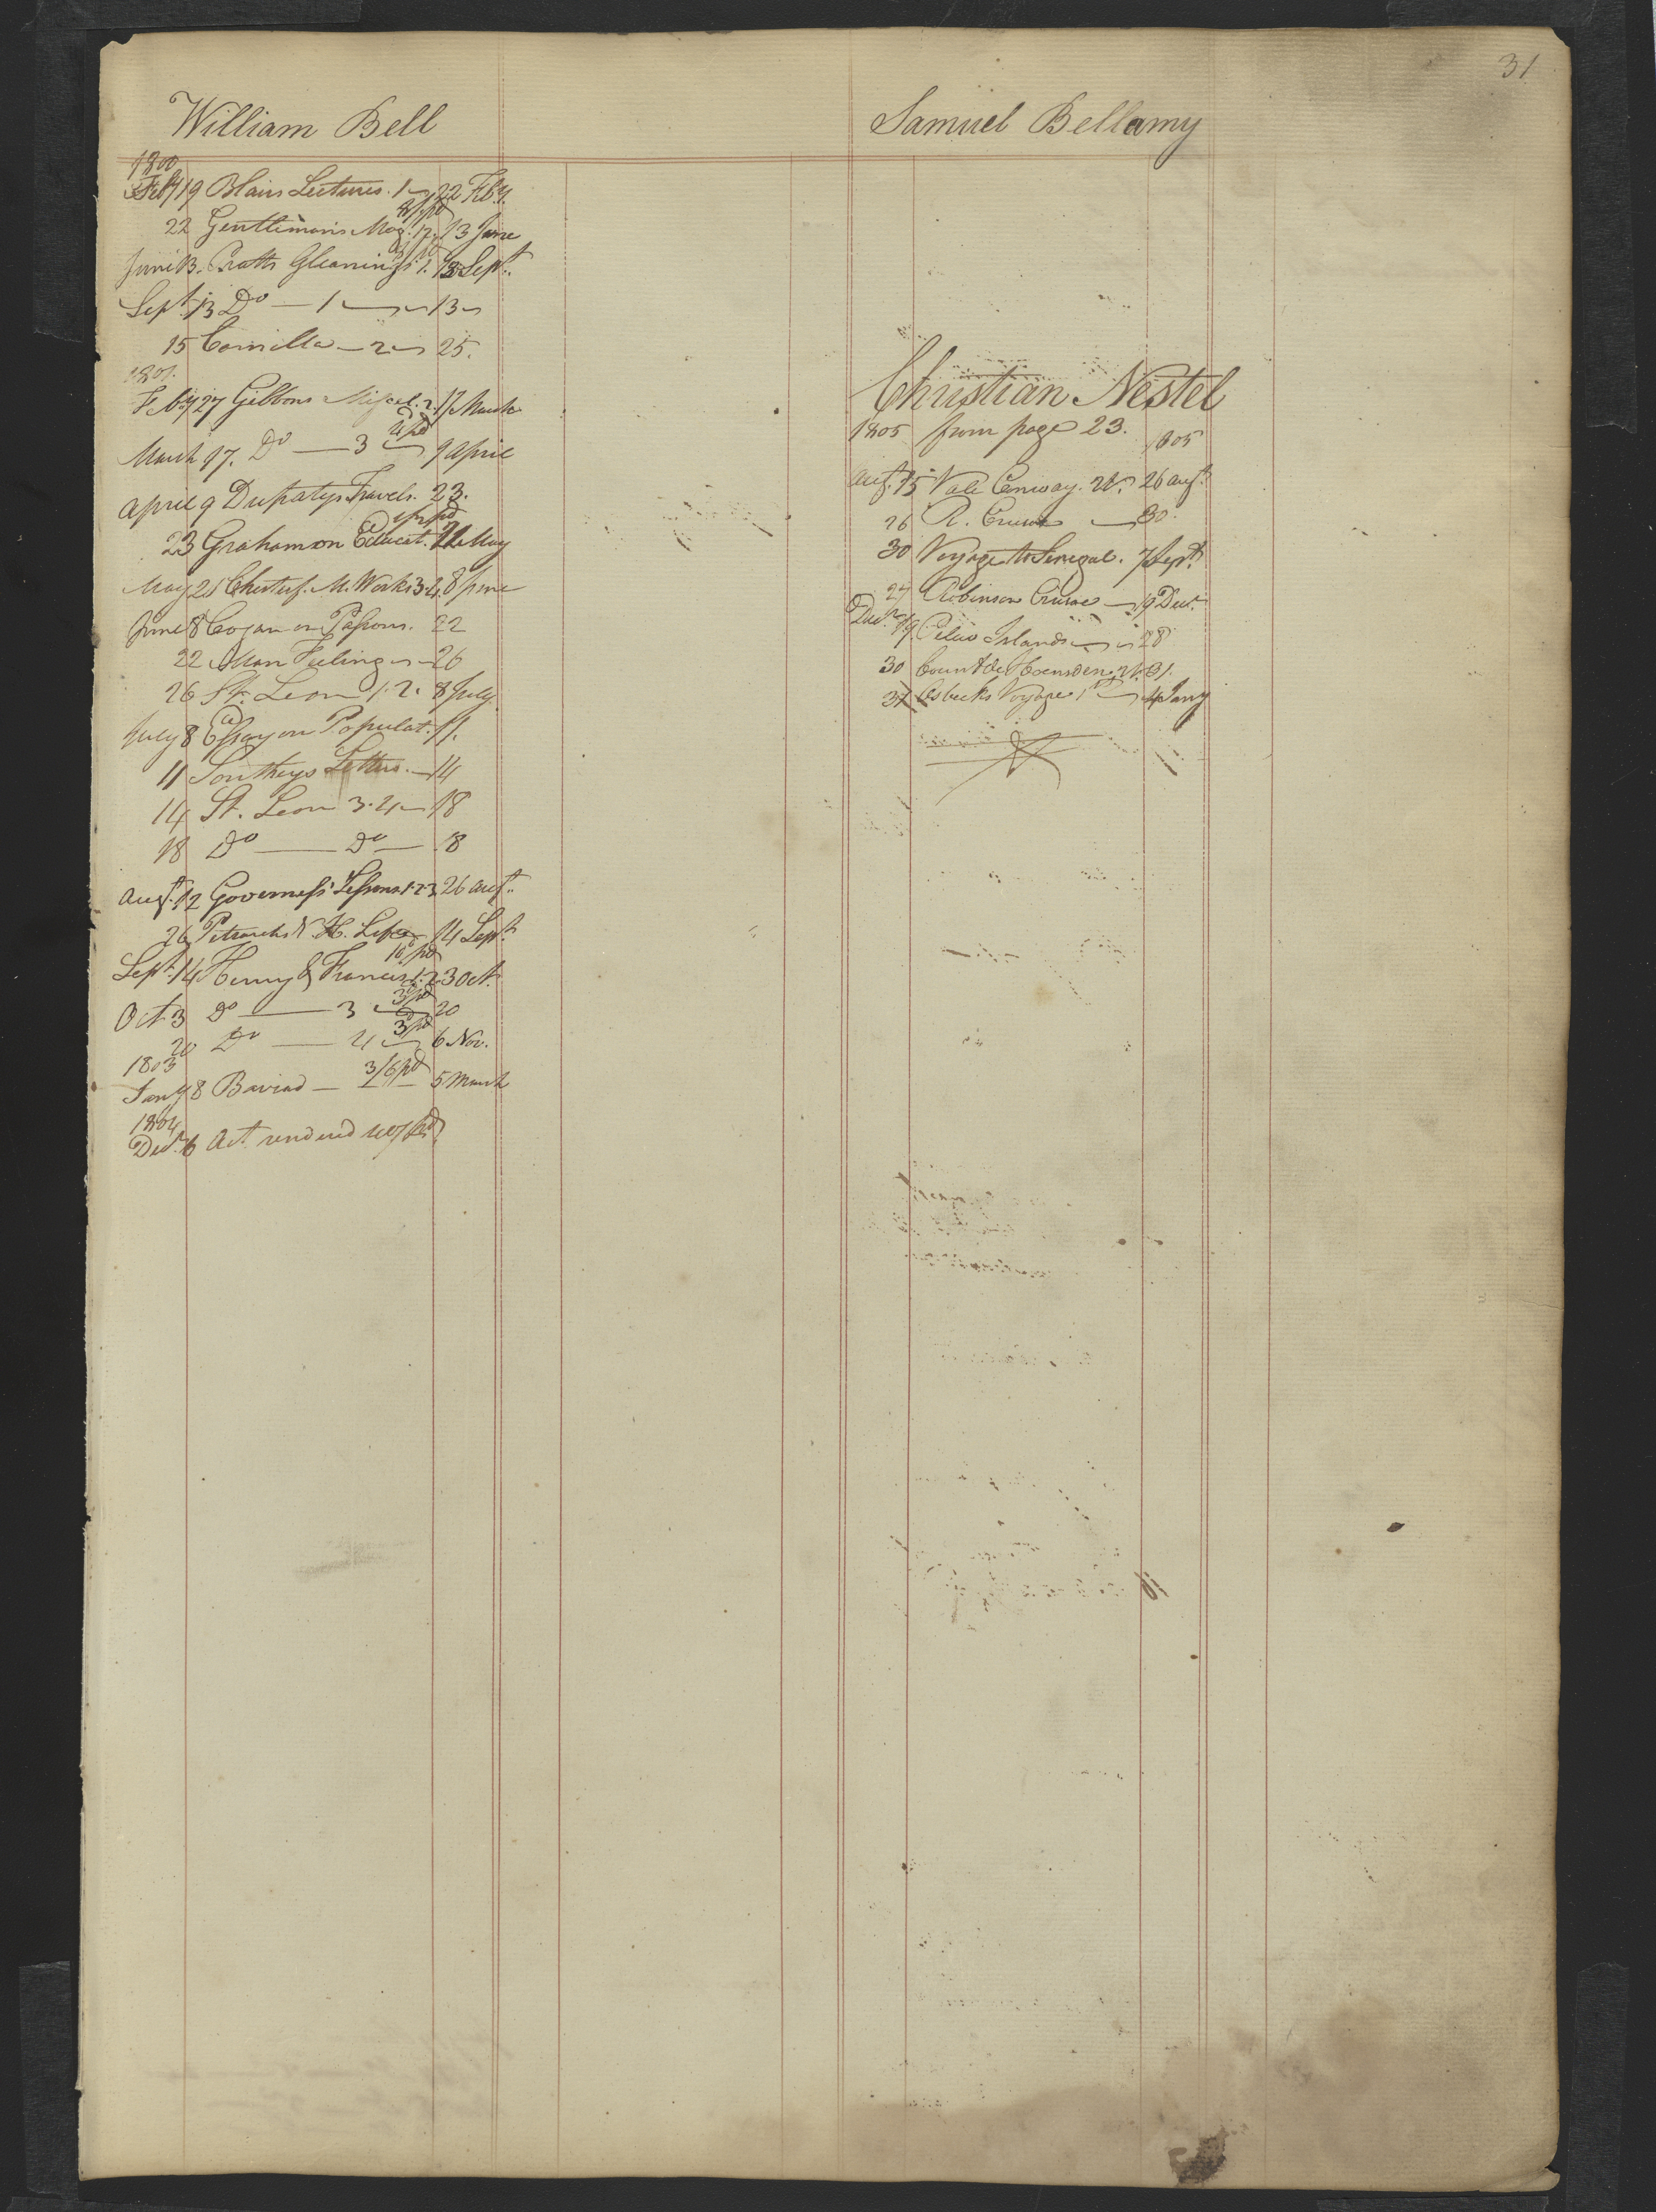 31
William Bell
1800
Feby 19 Blairs Lectures. 1 22 Feby.
22 Gentlemans Mag. 17. 13 June
June 13. Pratts Gleanings. 1. 13 Sept.
Sept. 13 Do — 1 — 13
15 Camilla — 2 25.
1801.
Feby 27 Gibbons Miscel. 2. 17 March
March 17. Do — 3 9 April
April 9 Dupatys Travels. 23.
23 Graham on Educat. 21 May
May 21 Chesterf. M. Works 3.4. 8 June
June 8 Cogan on Passions. 22
22 Man Feeling 26
26 St. Leon 1.2. 8 July
July 8 Essay on Populat. 11.
11 Southeys Letters. — 14
14 St. Leon 3.4 — 18
18 Do — Do — 18
Augt. 12 Governess Lessons 1.2.3 26 Augt.
26 Petrarchs Life 14 Sept.
Sept. 14 Henry & Frances 1.2. 3 Oct.
Oct 3 Do — 3 20
20 Do — 4 6 Nov.
1803
Jany 8 Baviad — 3/6 pd 5 March
1804
Decr. 6 Act rendered pd
Samuel Bellamy
Christian Nestel
1805 from page 23. 1805
Augt. 15 Vale Conway. 26 Augt.
26 R. Crusoe — 30.
30 Voyage to Senegal. 7 Sept.
27 Robinson Crusoe — 19 Decr.
Decr. 19. Pelew Islands 28
30 Count de Hoensdern. 31.
31 Osbecks Voyage 1 4 Jany